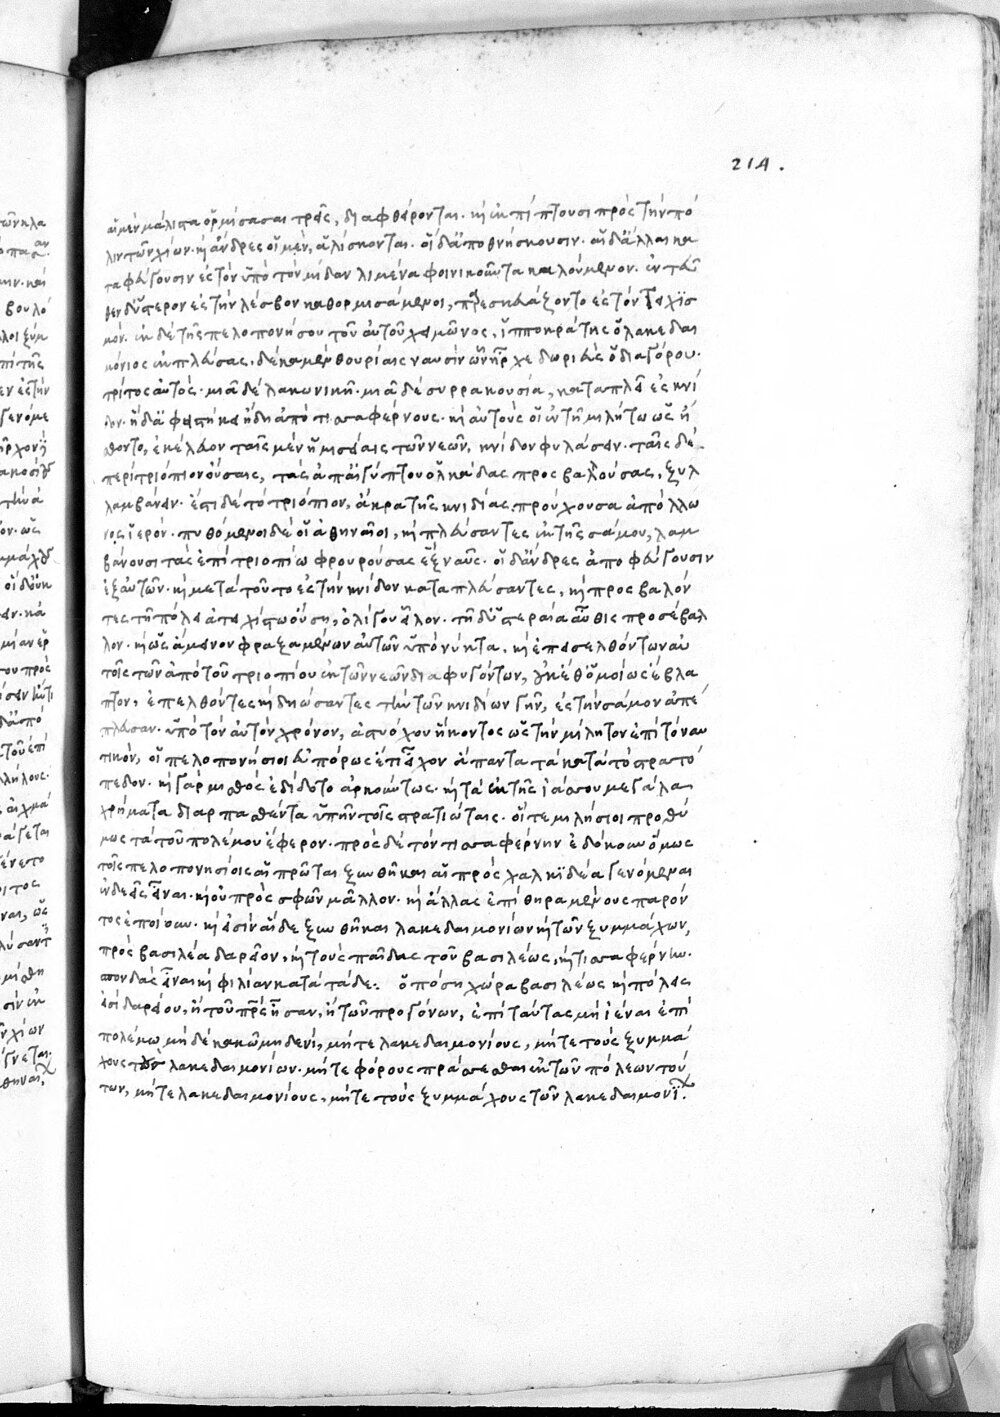 214.
αἱ μὲν μάλιστα ὁρμίσασαι τρεῖς, διαφθείρονται. κὴ ἐκπίπτουσι πρὸς τὴν πό
λιν τῶν χίων. κὴ ἄνδρες οἱ μὲν, ἁλίσκονται. οἱ δ' ἀποθνήσκουσιν. αἱ δ' ἄλλαι κα
ταφεύγουσιν ἐς τὸν ὑπὸ τὸν μίδαν λιμένα φοινικοῦντα καλούμενον. ἐντεῦ
θεν δ' ὕστερον ἐς τὴν λέσβον καθορμισάμενοι, πρεσκευάζοντο ἐς τὸν τειχϊσ
μόν. ἐκ δὲ τῆς πελοπονήσου τοῦ αὐτοῦ χειμῶνος, ἱπποκράτης ὁ λακεδαι
μόνιος ἐκπλεύσας. δέκα μὲν θουρίαις ναυσὶν ὧν ἦρχε δωριεὺς ὁ διαγόρου.
τρίτος αὐτός. μιᾶ δὲ λακωνικῆ. μιᾶ δὲ συρρακουσία, καταπλεῖ ἐς κνί
δον. ἡ δ' ἀφεστήκει ἤδη ἀπὸ τισσαφέρνους. κὴ αὐτοὺς οἱ ἐν τῆ μιλήτω ὡς ἤ
σθοντο, ἐκέλευον ταῖς μὲν ἡμισείαις τῶν νεῶν, κνίδον φυλάσειν. ταῖς δὲ
περὶ τριόπιον οὔσαις, τὰς ἀπ' αἰγύπτου ὁλκάδας προσβαλούσας, ξυλ
λαμβάνειν. ἔστι δὲ τὸ τριόπιον, ἄκρα τῆς κνιδίας προύχουσα ἀπόλλω
νος ἱερόν. πυθόμενοι δὲ οἱ ἀθηναῖοι, κὴ πλεύσαντες ἐκ τῆς σάμου, λαμ
βάνουσι τὰς ἐπὶ τριοπίω φρουρούσας ἓξ ναῦς. οἱ δ' ἄνδρες ἀποφεύγουσιν
ἐξ αὐτῶν. κὴ μετὰ τοῦτο ἐς τὴν κνίδον καταπλεύσαντες, κὴ προσβαλόν
τες τῆ πόλει ἀτειχίστω οὔση, ὀλίγου εἷλον. τῆ δ' ὑστεραία αὖθις προσέβαλ
λον. κὴ ὡς ἄμεινον φραξαμένων αὐτῶν ὑπὸ νύκτα. κὴ ἐπεισελθόντων αὐ
τοῖς τῶν ἀπὸ τοῦ τριοπίου ἐκ τῶν νεῶν διαφυγόντων, οὐκέθ' ὁμοίως ἔβλα
πτον, ἐπελθόντες κὴ δηώσαντες τὴν τῶν κνιδίων γῆν, ἐς τὴν σάμον ἀπέ
πλευσαν. ὑπὸ τὸν αὐτὸν χρόνον, ἀστυόχου ἥκοντος ὡς τὴν μίλητον ἐπὶ τὸ ναυ
τικὸν, οἱ πελοπονήσιοι εὐπόρως ἔτι εἶχον ἅπαντα τὰ κατὰ τὸ στρατό
πεδον. κὴ γὰρ μισθὸς ἐδίδοτο ἀρκούντως. κὴ τὰ ἐκ τῆς ἰάσου μεγάλα
χρήματα διαρπασθέντα ὑπῆν τοῖς στρατιώταις. οἵ τε μιλήσιοι προθύ
μως τὰ τοῦ πολέμου ἔφερον. πρὸς δὲ τὸν τισσαφέρνην ἐδόκουν ὅμως
τοῖς πελοπονησίοις αἱ πρῶται ξυνθῆκαι αἱ πρὸς χαλκιδέα γενόμεναι
ἐνδεεῖς εἶναι. κὴ οὐ πρὸς σφῶν μᾶλλον. κὴ ἄλλας ἐπὶ θηραμένους παρόν
τος ἐποίουν. κὴ εἰσὶν αἵδε ξυνθῆκαι λακεδαιμονίων κὴ τῶν ξυμμάχων,
πρὸς βασιλέα δαρεῖον, κὴ τοὺς παῖδας τοῦ βασιλέως, κὴ τισσαφέρνην.
σπονδὰς εἶναι κὴ φιλίαν κατὰ τάδε. ὁπόση χώρα βασιλέως κὴ πόλεις
εἰσὶ δαρείου, ἢ τοῦ πρς ἦσαν, ἢ τῶν προγόνων, ἐπὶ ταύτας μὴ ἰέναι ἐπὶ
πολέμω μηδὲ κακῶ μηδενὶ, μήτε λακεδαιμονίους, μήτε τοὺς ξυμμά
χους τῶν λακεδαιμονίων. μήτε φόρους πράσσεσθαι ἐκ τῶν πόλεων τού
των, μήτε λακεδαιμονίους, μήτε τοὺς ξυμμάχους τῶν λακεδαιμονί.